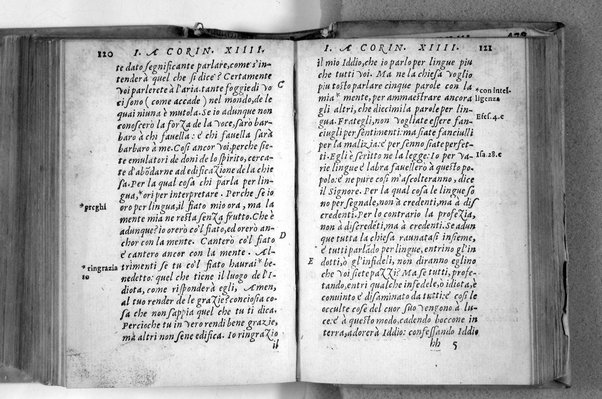 120 I. A CORIN. XIIII.
te dato segnificante parlare, come s'in-
tenderà quel che si dice? Certamente
voi parlerete à l'aria. tante foggie di vo
ci sono (come accade) nel mondo, de le
quai niuna è mutola. Se io adunque non
conoscerò la forza de la voce, sarò bar-
baro à chi favella: è chi favella sarà
barbaro à me. Cosi ancor voi, perche siete
emulatori de doni de lo spirito, cercate
d'abōdarne ad edificazione de la chie
sa. Per la qual cosa chi parla per lin-
gua, *ori per interpretare. Perche se io
oro per lingua, il fiato mio ora, ma la
mente mia ne resta senza frutto. Che è
adunque? io orerò co'l fiato, ed orerò an-
chor con la mente. Canterò co'l fiato
è cantero ancor con la mente. Al-
trimenti se tu co'l fiato haurai* be-
nedetto: quel che tiene il luogo de l'I-
diota, come risponderà egli, Amen,
al tuo render de le grazie? conciosia co-
sa che non sappia quel che tu ti dica.
Percioche tu in vero rendi bene grazie,
mà altri non se ne edifica. Io ringrazio
il
C
*preghi
D
*ringrazia
to
I. A CORIN. XIIII. 121
il mio Iddio, che io parlo per lingue piu
che tutti voi. Ma ne la chiesa voglio
piu tosto parlare cinque parole con la
mia* mente, per ammaestrare ancora
gli altri, che diecimila parole per lin-
gua. Frategli, non vogliate essere fan-
ciugli per sentimenti: ma siate fanciulli
per la malizia: è per senno siate perfet-
ti. Egli è scritto ne la legge: Io per va-
rie lingue è labra favellerò à questo po-
polo: è ne pure cosi m'ascolteranno, dice
il Signore. Per la qual cosa le lingue so
no per segnale, non à credenti, mà à dis
credenti. Per lo contrario la profezia,
non à discredēti, mà à credenti. Se adun
que tutta la chiesa raunatasi insieme,
è tutti parlādo per lingue, entrino gl'in
dotti, ò gl'infideli, non diranno eglino
che voi siete pazzi? Ma se tutti, profe-
tando, entri qualche infedele, ò idiota, è
conuinto è disaminato da tutti: è cosi le
occulte cose del cuor suo vengono à lu-
ce: è à questo modo, cadendo boccone in
terra, adorerà Iddio: confessando Iddio
hh 5
*con intel-
ligenza
Esei.4.c
Isa.28.c
E